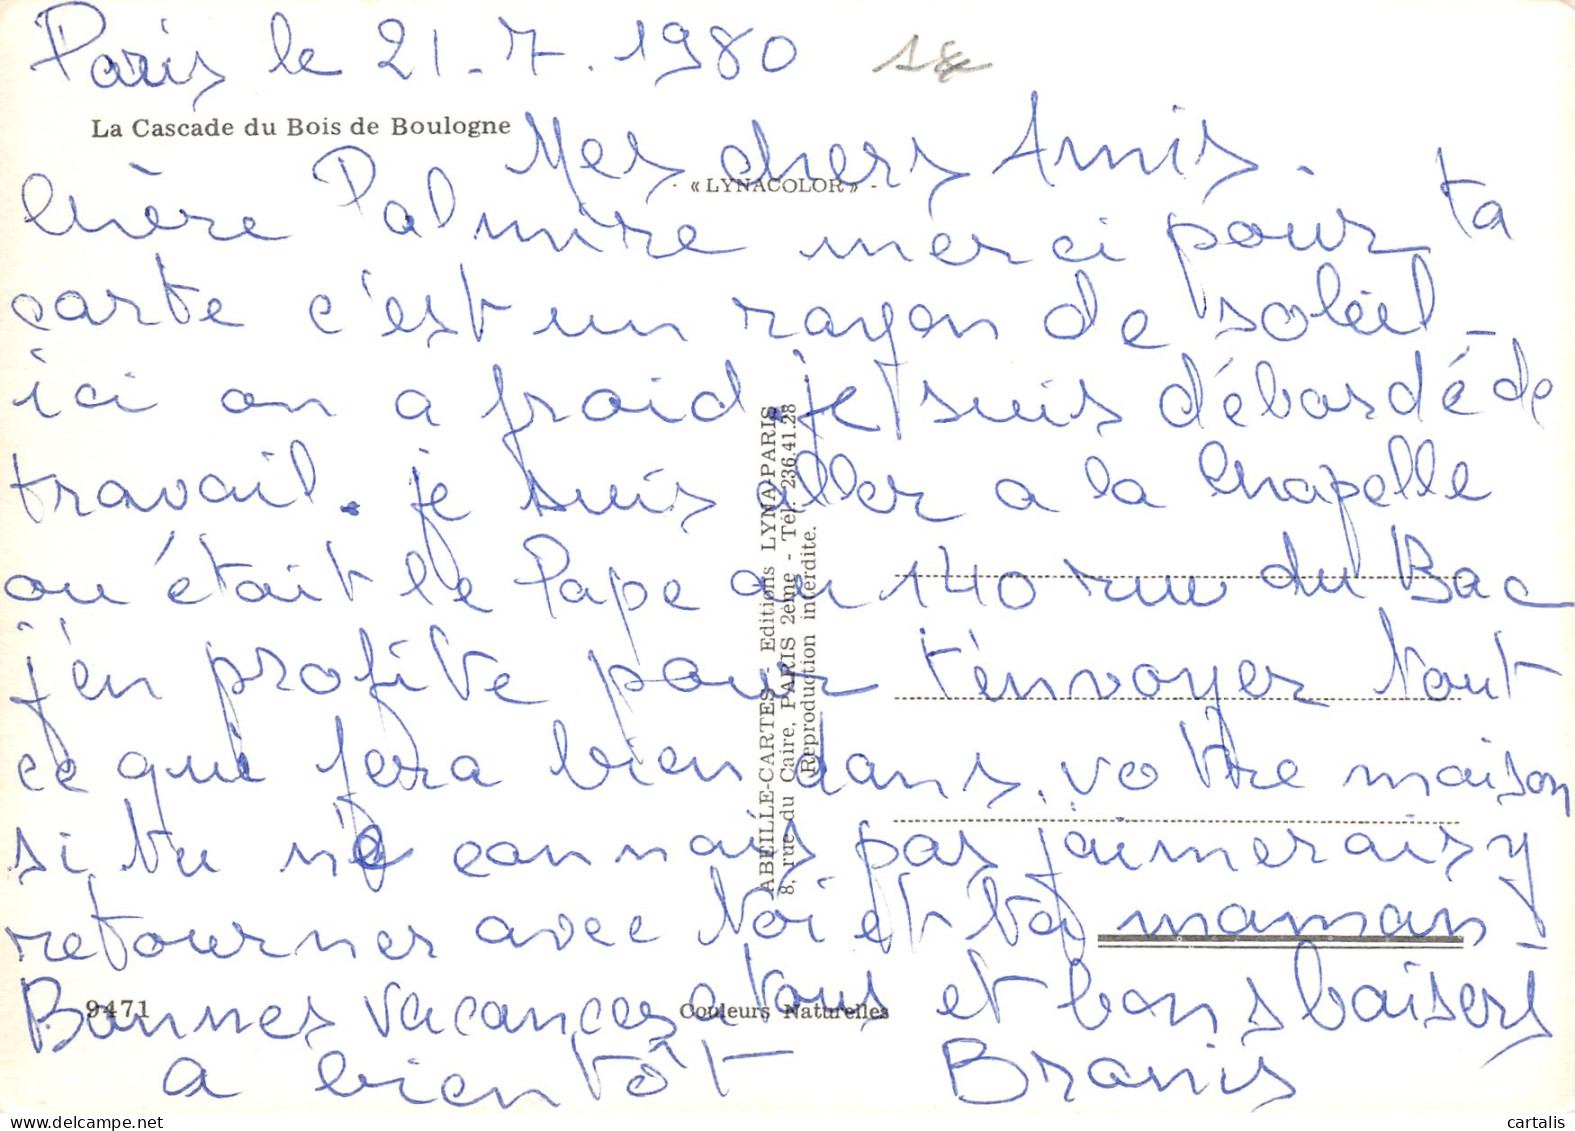 Paris le 21-7.1980
La Cascade du Bois de Boulogne
Mes chers Amis.
- « LYNACOLOR » -
Chère Palmire merci pour ta
carte c'est un rayon de soleil -
ici on a froid. je suis débordé de
travail. je suis aller a la Chapelle
ou était le Pape au 140 rue du Bac
j'en profite pour t'envoyer tout
ce qui fera bien dans votre maison
si tu ne connais pas j'aimerais y
retourner avec toi et ta maman
Bonnes vacances a tous et bons baisers
a bientôt
ABEILLE-CARTES - Editions LYNA-PARIS
8, rue du Caire, PARIS 2ème - Tél. 236.41.28
Reproduction interdite.
9471
Couleurs Naturelles
cartalis